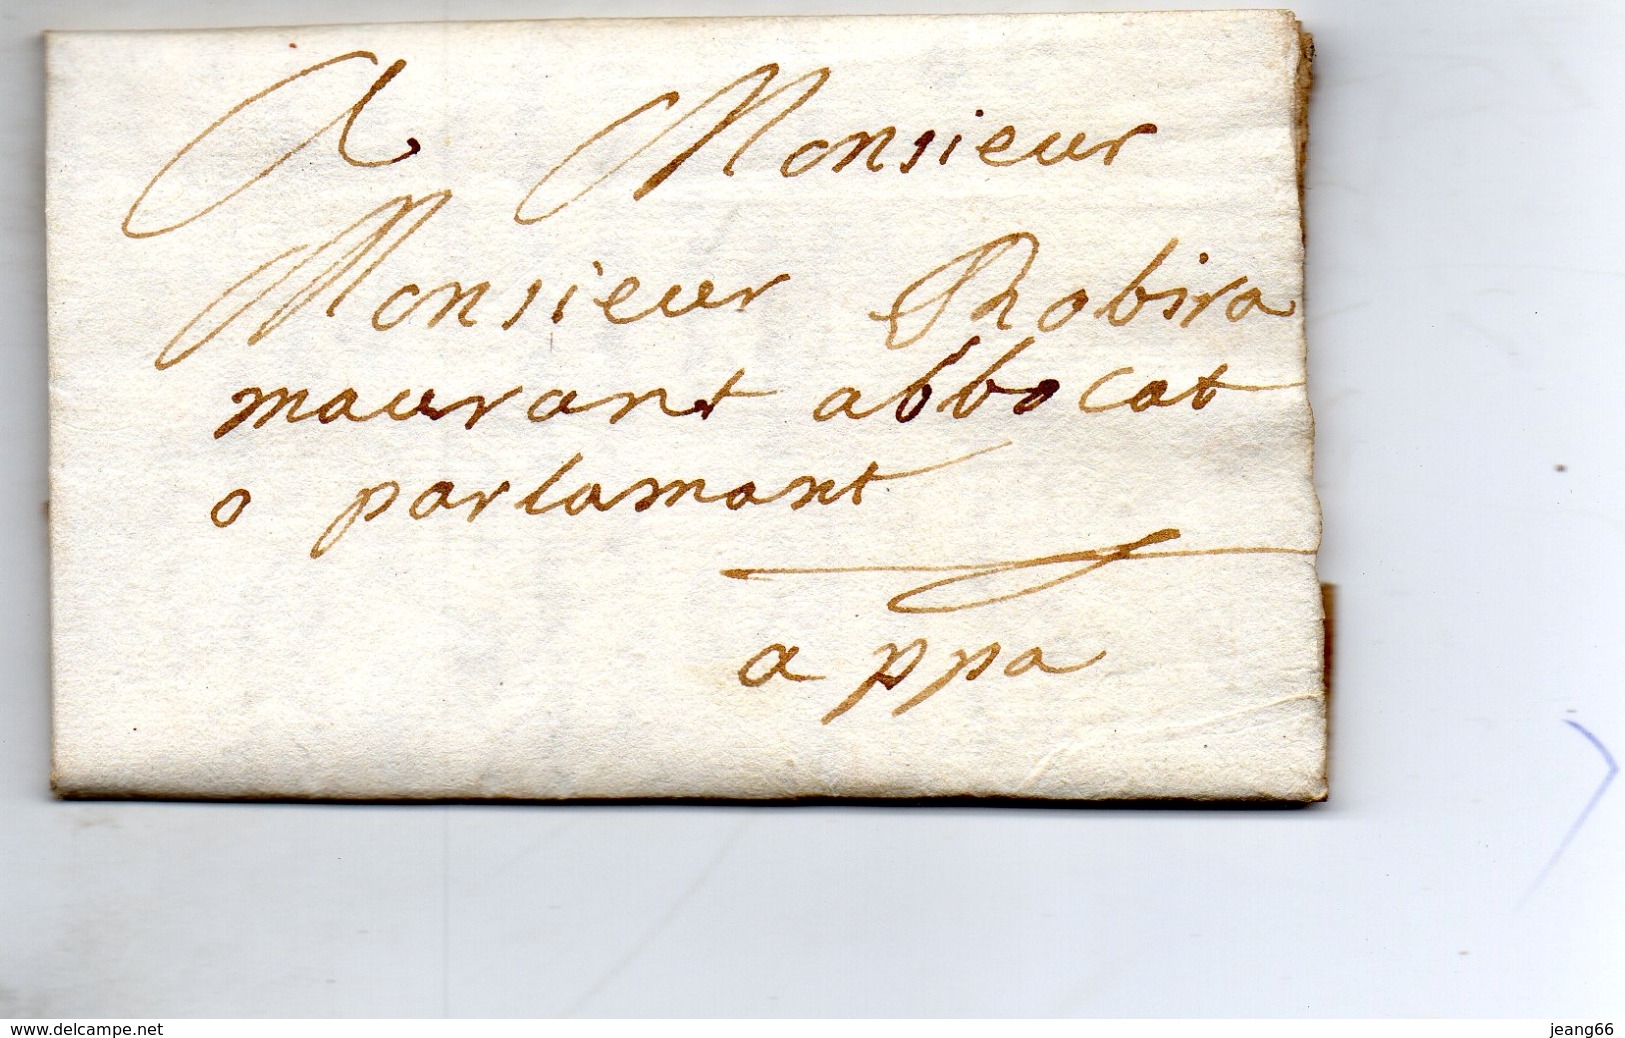 A Monsieur
Monsieur Robira
maurant abbocat
o parlamant
a ppa
www.delcampe.net
jeang66